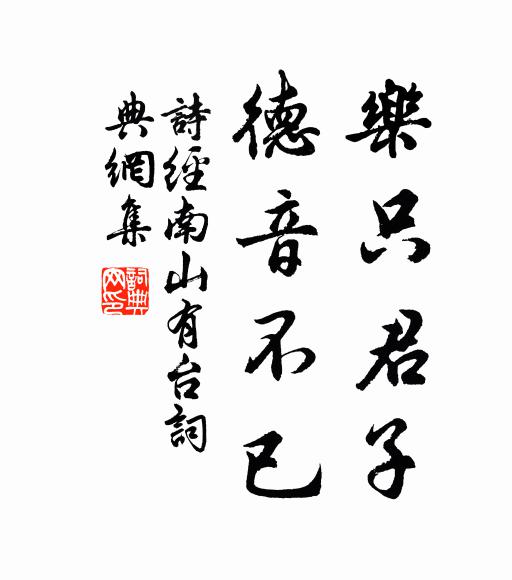 樂只君子
德音不已
詩經南山有台詞
典網集
詞典
网印